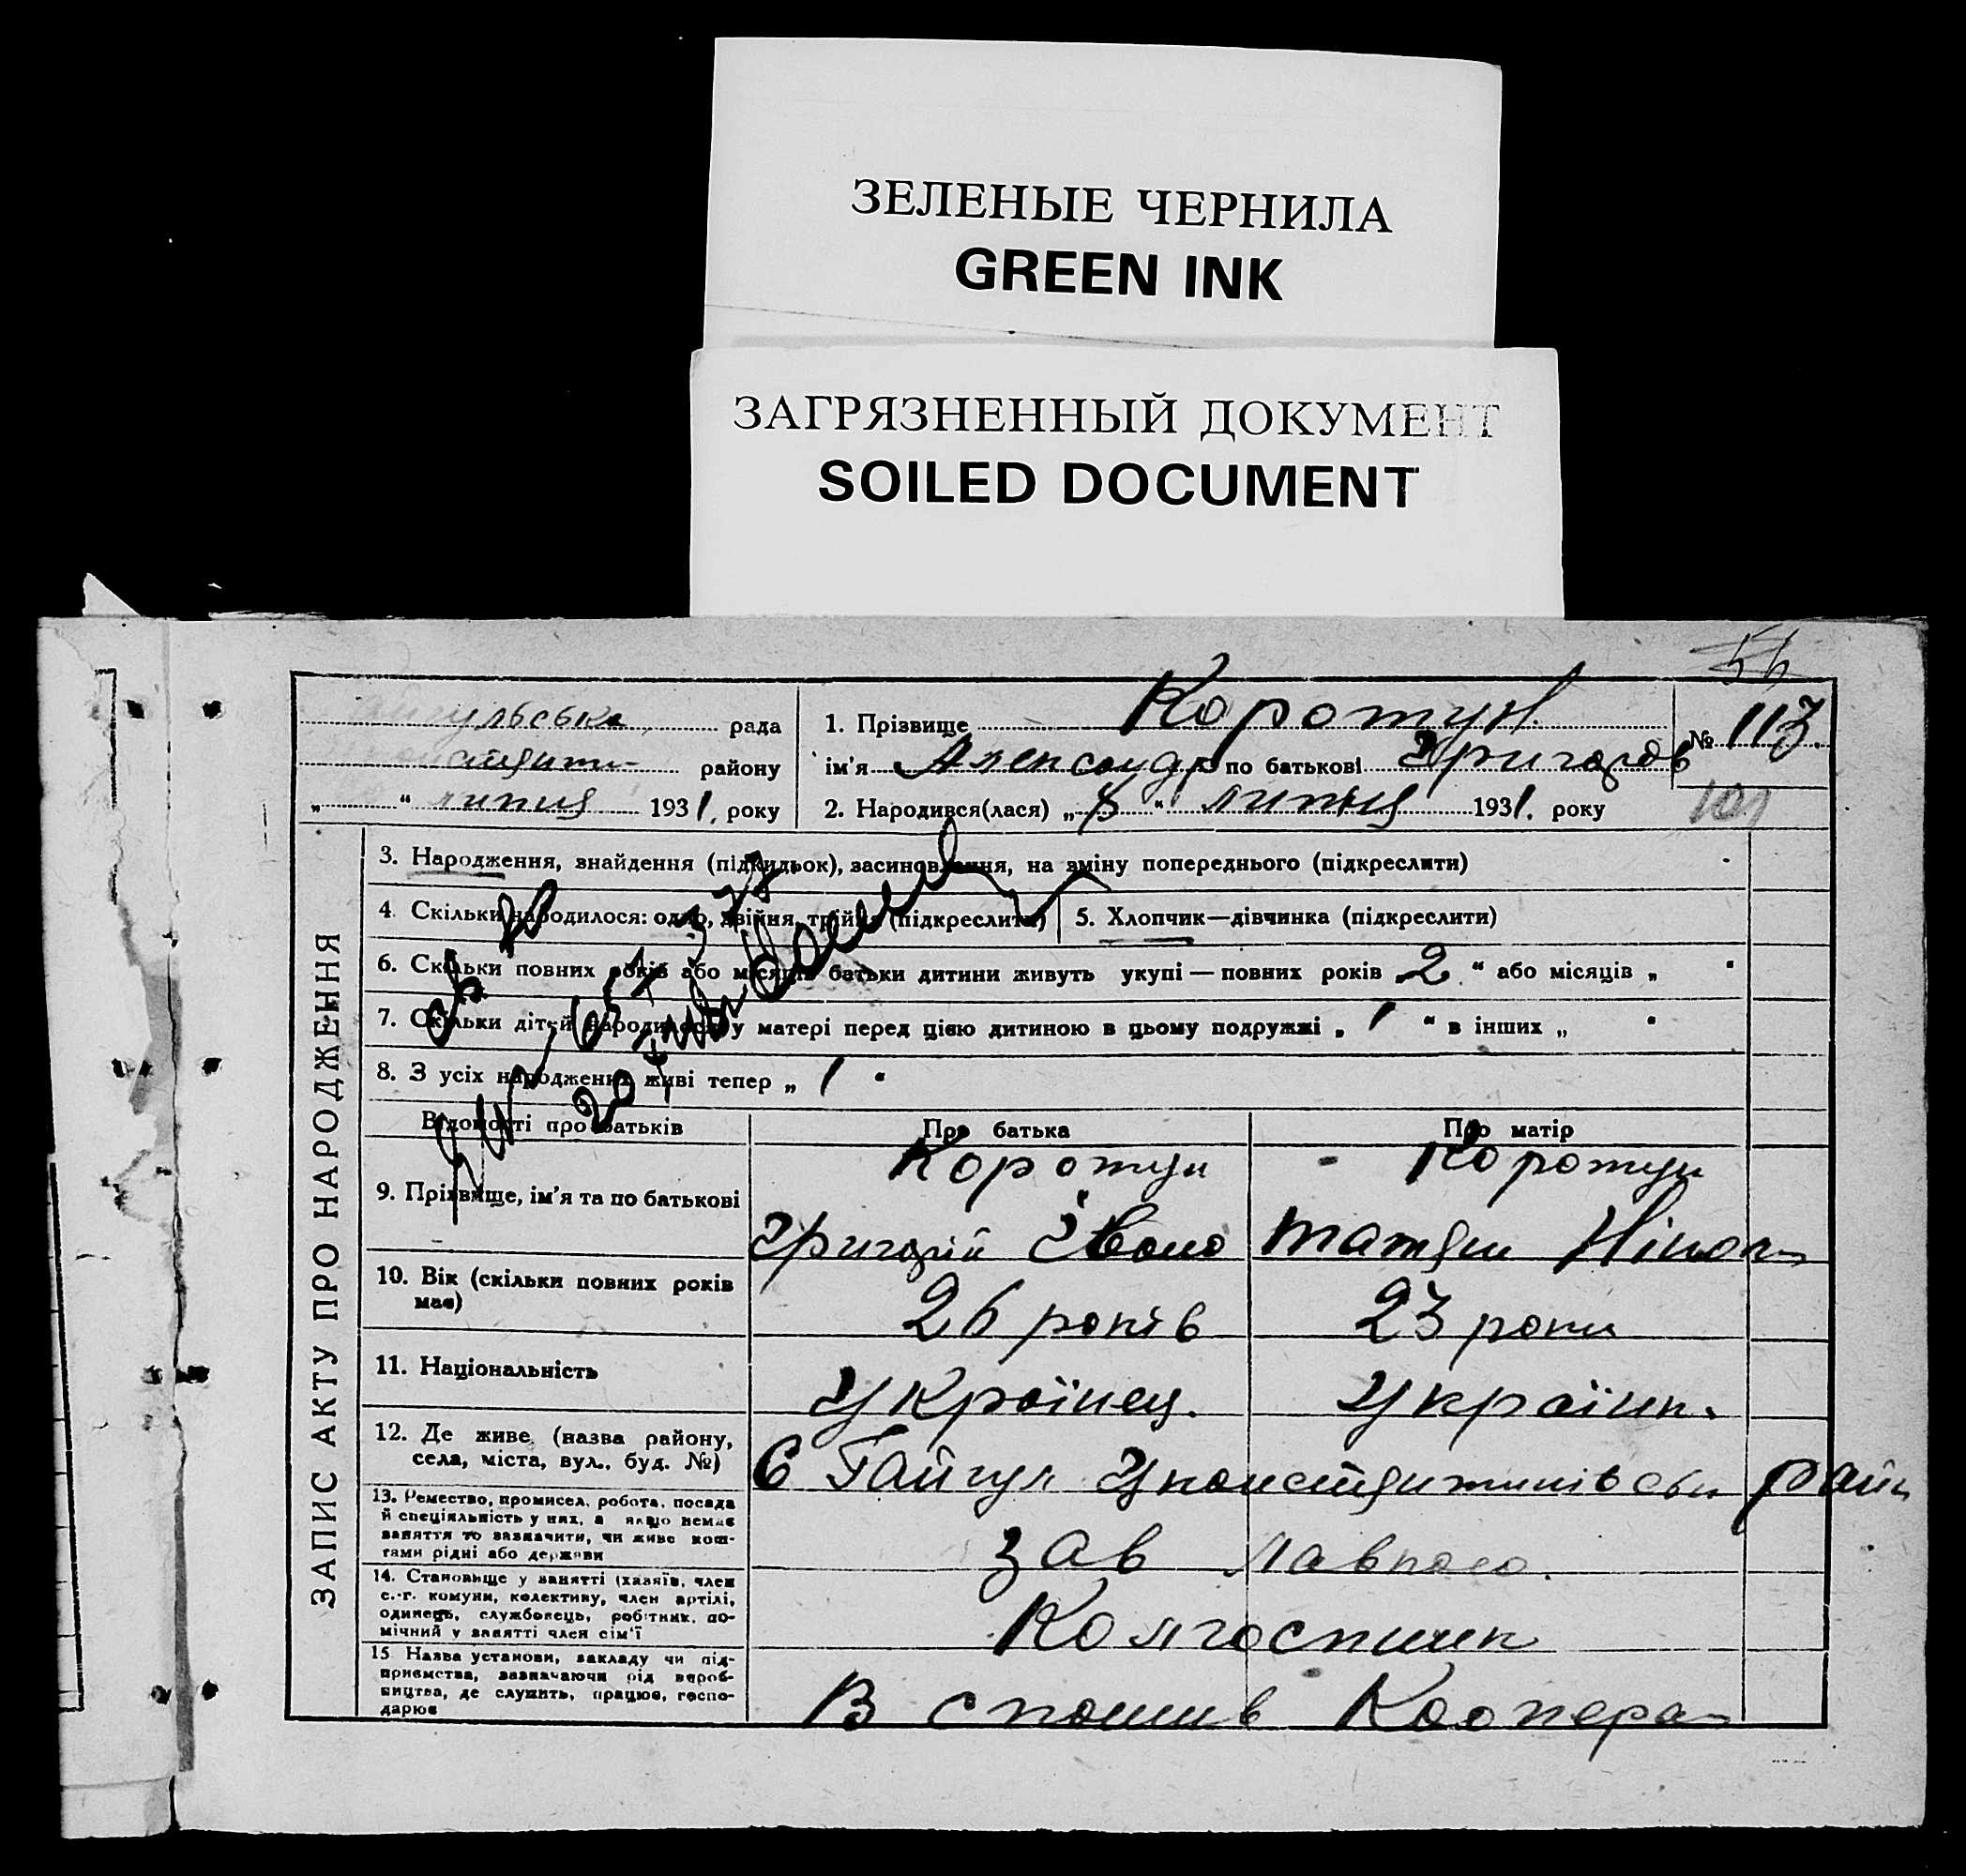 ЗЕЛЕНЫЕ ЧЕРНИЛА
GREEN INK
ЗАГРЯЗНЕННЫЙ ДОКУМЕНТ
SOILED DOCUMENT
рада
району
„ “ липня 1931. року
1. Прізвище Коротун
ім'я Александр по батькові Григоров
2. Народився(лася) „ “ липня 1931. року
№ 113.
101
ЗАПИС АКТУ ПРО НАРОДЖЕННЯ
3. Народження, знайдення (підкидьок), засиновлення, на зміну попереднього (підкреслити)
4. Скільки народилося: одно, двійня, трійня (підкреслити)
5. Хлопчик—дівчинка (підкреслити)
6. Скільки повних років або місяців батьки дитини живуть укупі — повних років 2 “ або місяців „ “
7. Скільки дітей народилося у матері перед цією дитиною в цьому подружжі „ 1 “ в інших „ “
8. З усіх народжених живі тепер „ 1 “
Відомості про батьків
Про батька
Про матір
9. Прізвище, ім'я та по батькові
Коротун
Григорій Івано
Коротун
Татяна Нікол
10. Вік (скільки повних років має)
26 років
23 роки
11. Національність
Українец.
Українк.
12. Де живе (назва району, села, міста, вул., буд. №)
С Гайгул Уконстянтинівськ район
13. Ремество, промисел, робота, посада й спеціяльність у них, а якщо немає заняття то зазначити, чи живе коштами рідні або держави
зав лавкою.
14. Становище у занятті (хазяїв, член с.-г. комуни, колективу, член артілі, одинець, службовець, робітник, помічний у занятті член сім'ї
Колгоспник
15. Назва установи, закладу чи підприємства, зазначаючи рід виробництва, де служить, працює, господарює
В спожив Коопера